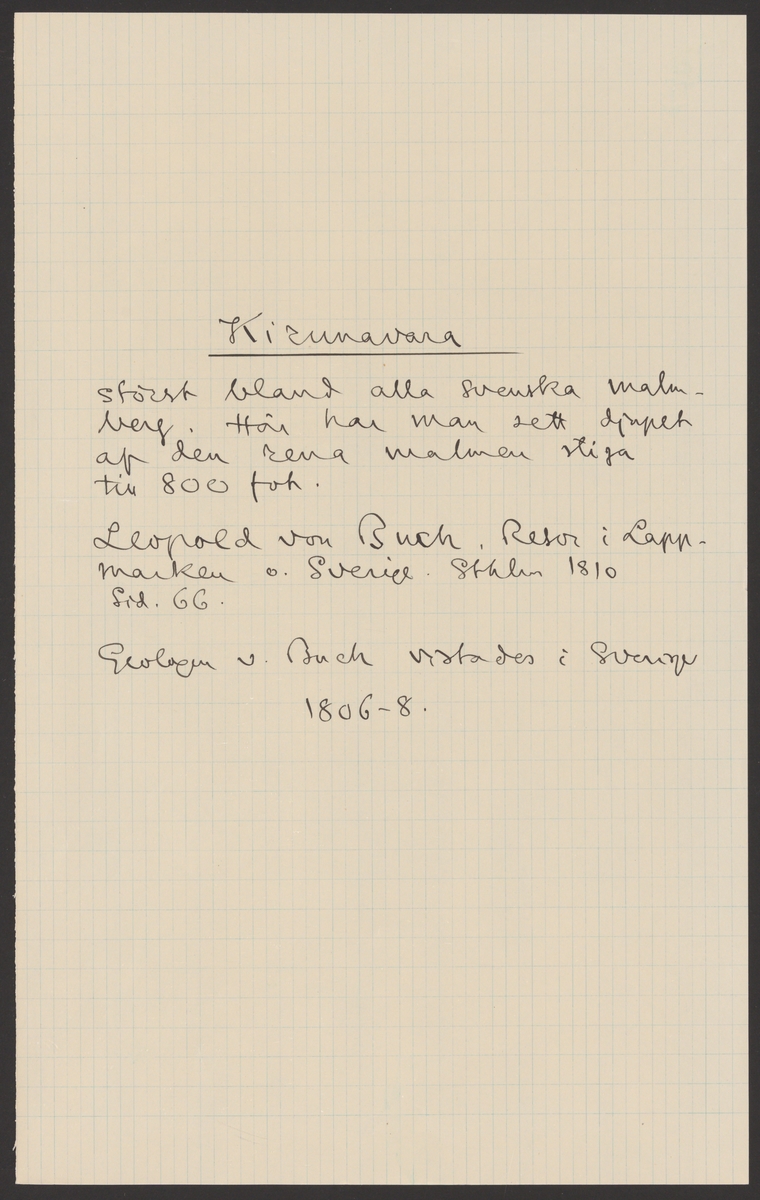 Kirunavara
störst bland alla svenska malm-
berg. Här har man sett djupet
af den rena malmen stiga
till 800 fot.
Leopold von Buch, Resor i Lapp-
marken o. Sverige. Sthlm 1810
Sid. 66.
Geologen v. Buch vistades i Sverige
1806-8.